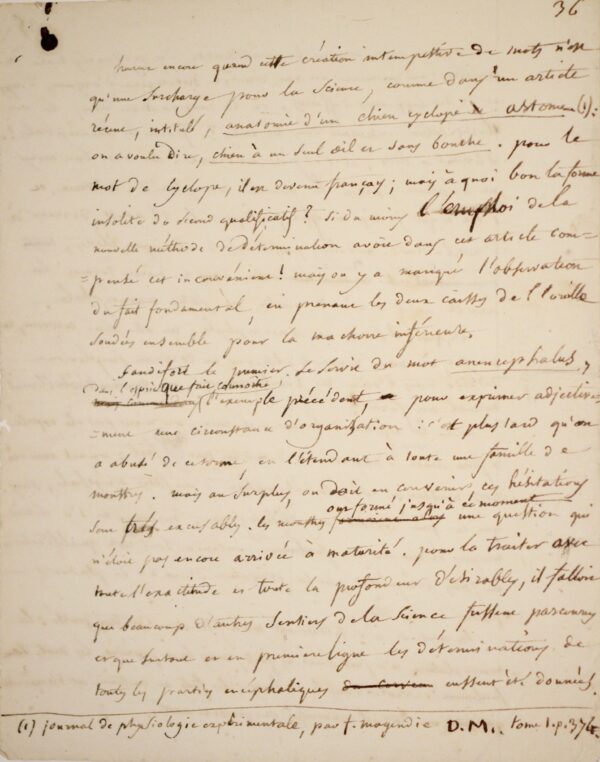 36
encore quand cette création intempestive de mots n'est
qu'une surcharge pour la science, comme dans un article
récent, intitulé, anatomie d'un chien cyclope et astome (1):
on a voulu dire, chien à un seul œil et sans bouche. pour le
mot de cyclope, il est devenu français; mais à quoi bon la forme
insolite du second qualificatif? Si du moins l'emploi de la
nouvelle méthode de détermination avoit dans cet article com=
=pensé cet inconvénient! mais on y a manqué l'observation
du fait fondamental, en prenant les deux caisses de l'oreille
soudées ensemble pour la machoire inférieure.
Sandifort le premier se servit du mot anencephalus,
dans l'espèce que fait connoître
l'exemple précédent, pour exprimer adjective=
=ment une circonstance d'organisation: c'est plus tard qu'on
a abusé de ce terme, en l'étendant à toute une famille de
monstres. mais au surplus, on doit en convenir, ces hésitations
ont formé jusqu'à ce moment
sont très excusables. les monstres une question qui
n'étoit pas encore arrivée à maturité. pour la traiter avec
toute l'exactitude et toute la profondeur désirables, il falloit
que beaucoup d'autres sentiers de la science fussent parcourus
et que surtout et en première ligne les déterminations de
toutes les parties encéphaliques du cerveau eussent été données.
(1) journal de physiologie expérimentale, par f. magendie D.M.. tome 1. p. 374.